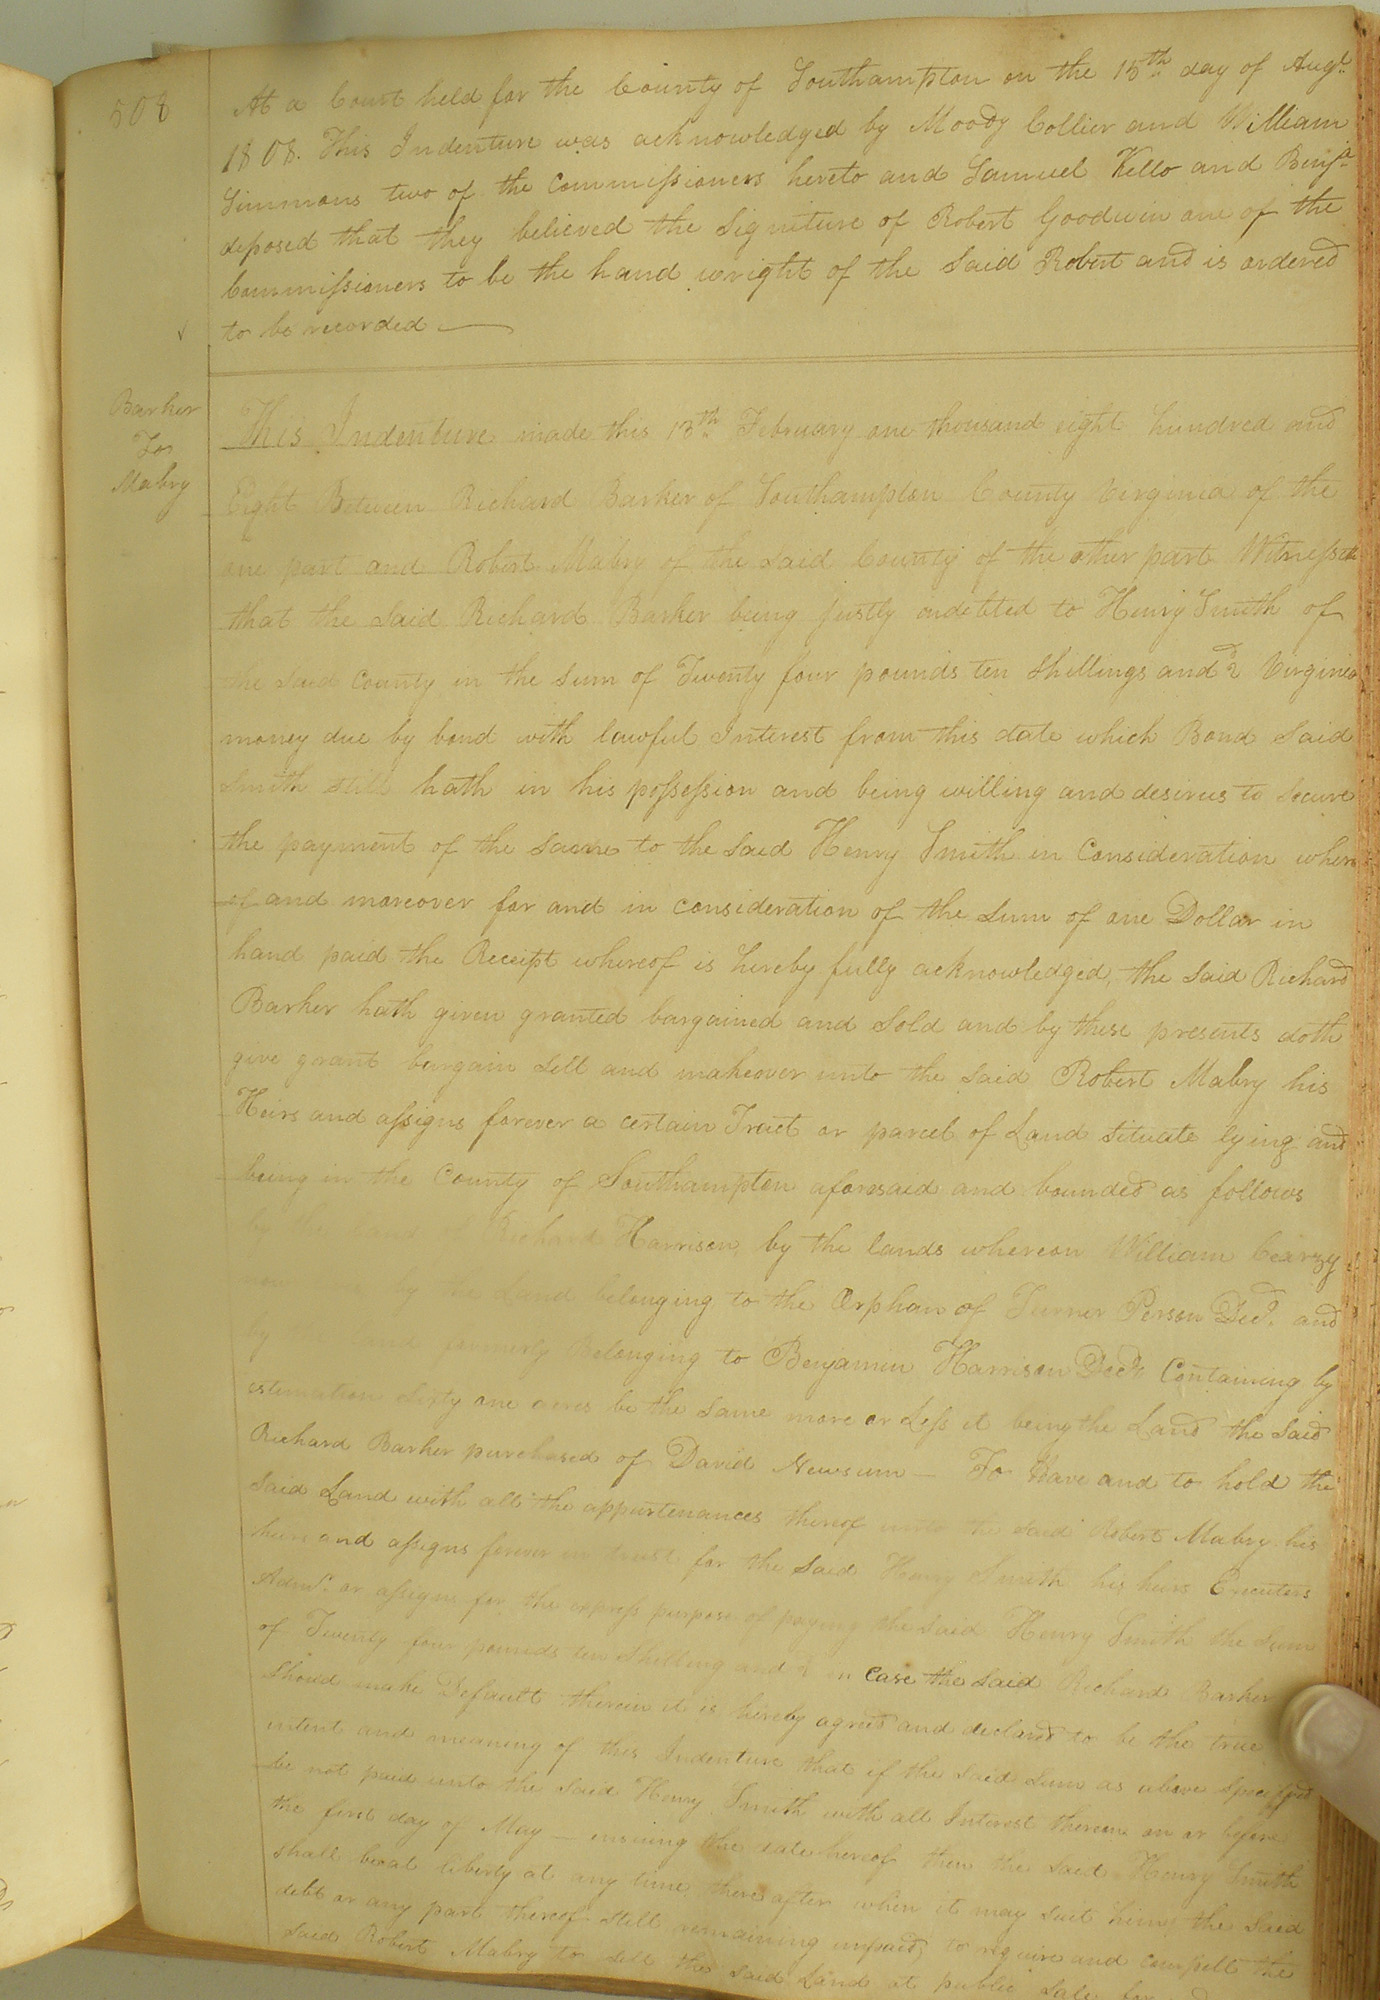 508
At a Court held for the County of Southampton on the 15th day of Augt.
1808. This Indenture was acknowledged by Moody Collier and William
Simmons two of the Commissioners hereto and Samuel Kello and Benja.
deposed that they believed the Signiture of Robert Goodwin one of the
Commissioners to be the hand wright of the said Robert and is ordered
to be recorded
Barker
To
Mabry
This Indenture made this 13th February one thousand eight hundred and
Eight Between Richard Barker of Southampton County Virginia of the
one part and Robert Mabry of the said County of the other part Witnesseth
that the said Richard Barker being justly indebted to Henry Smith of
the said County in the sum of Twenty four pounds ten Shillings and 2d Virginia
money due by bond with lawful Interest from this date which Bond said
Smith still hath in his possession and being willing and desirus to secure
the payment of the same to the said Henry Smith in Consideration where
of and moreover for and in consideration of the sum of one Dollar in
hand paid the Receipt whereof is hereby fully acknowledged, the said Richard
Barker hath given granted bargained and sold and by these presents doth
give grant bargain sell and makeover unto the said Robert Mabry his
Heirs and assigns forever a certain Tract or parcel of Land situate lying and
being in the County of Southampton aforesaid and bounded as follows
by the land of Richard Harrison, by the lands whereon William
by the Land belonging to the Orphan of Turner Person Decd. and
by formerly Belonging to Benjamin Harrison Decd. Containing by
estimation sixty one acres be the same more or Less it being the Land the said
Richard Barker purchased of David Newsum – To Have and to hold the
said Land with all the appurtenances thereof unto the said Robert Mabry his
heirs and assigns forever in trust for the said Henry Smith his heirs Executers
Admrs. or assigns for the express purpose of paying the said Henry Smith the sum
of Twenty four pounds ten shilling and 2 in Case the said Richard Barker
should make Default therein it is hereby agreed and declared to be the true
intent and meaning of this Indenture that if the said sum as above specifyed
be not paid unto the said Henry Smith with all Interest thereon on or before
the first day of May – ensuing the date hereof then the said Henry Smith
shall be at liberty at any time there after when it may suit him, the said
debt or any part thereof still remaining unpaid, to require and compell the
said Robert Mabry to sell the said Land at public sale for